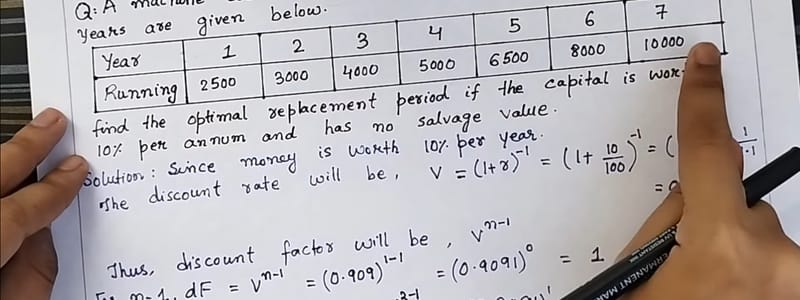 Q: A
years are given below.
Year 1 2 3 4 5 6 7
Running 2500 3000 4000 5000 6500 8000 10000
find the optimal replacement period if the capital is
10% per annum and has no salvage value.
Solution: Since money is worth 10% per year.
The discount rate will be, V = (1+r)^-1 = (1+ 10/100)^-1 = ( 1
=
Thus, discount factor will be, V^n-1
n=1, dF = V^n-1 = (0.909)^1-1 = (0.9091)^0 = 1
2-1
PERMANENT